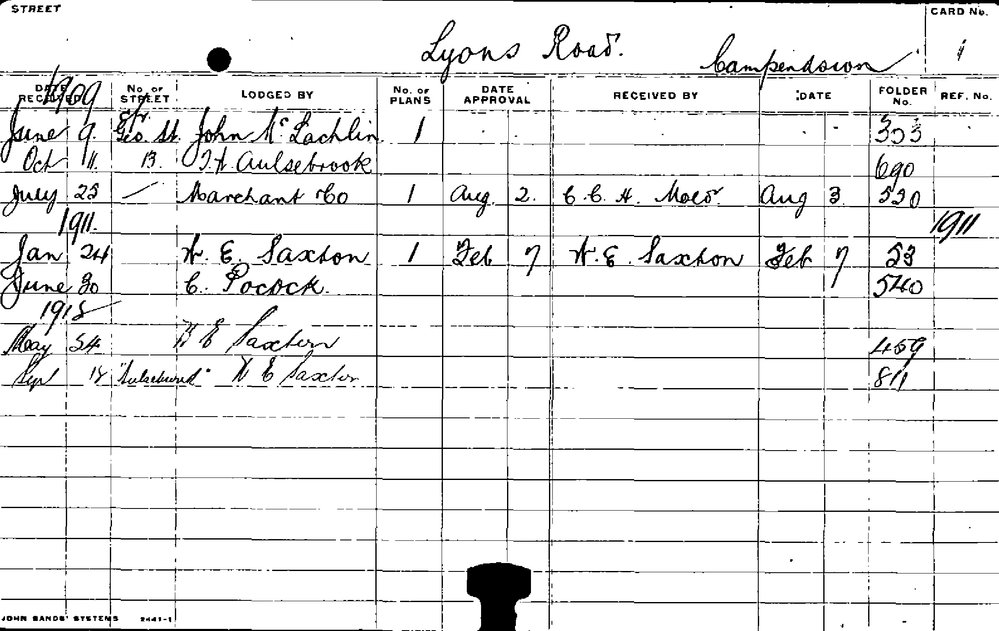 STREET
CARD No.
Lyons Road.
Campendown
1
1909
DATE RECEIVED No. OF STREET LODGED BY No. OF PLANS DATE APPROVAL RECEIVED BY DATE FOLDER No. REF. No.
June 9. cr. Geo. St. John McLachlin 1 353
Oct 11. B. T. H. Aulsebrook 690
July 25 — Marchant & Co 1 Aug. 2. C. C. H. Aug 3. 520
1911. 1911
Jan 24 H. E. Saxton 1 Feb 7 H. E. Saxton Feb 7 53
June 30 C. Pocock. 540
1915
May 24 H E Saxton 459
Sep 18 H E Saxton 811
JOHN SANDS' SYSTEMS 2441-1